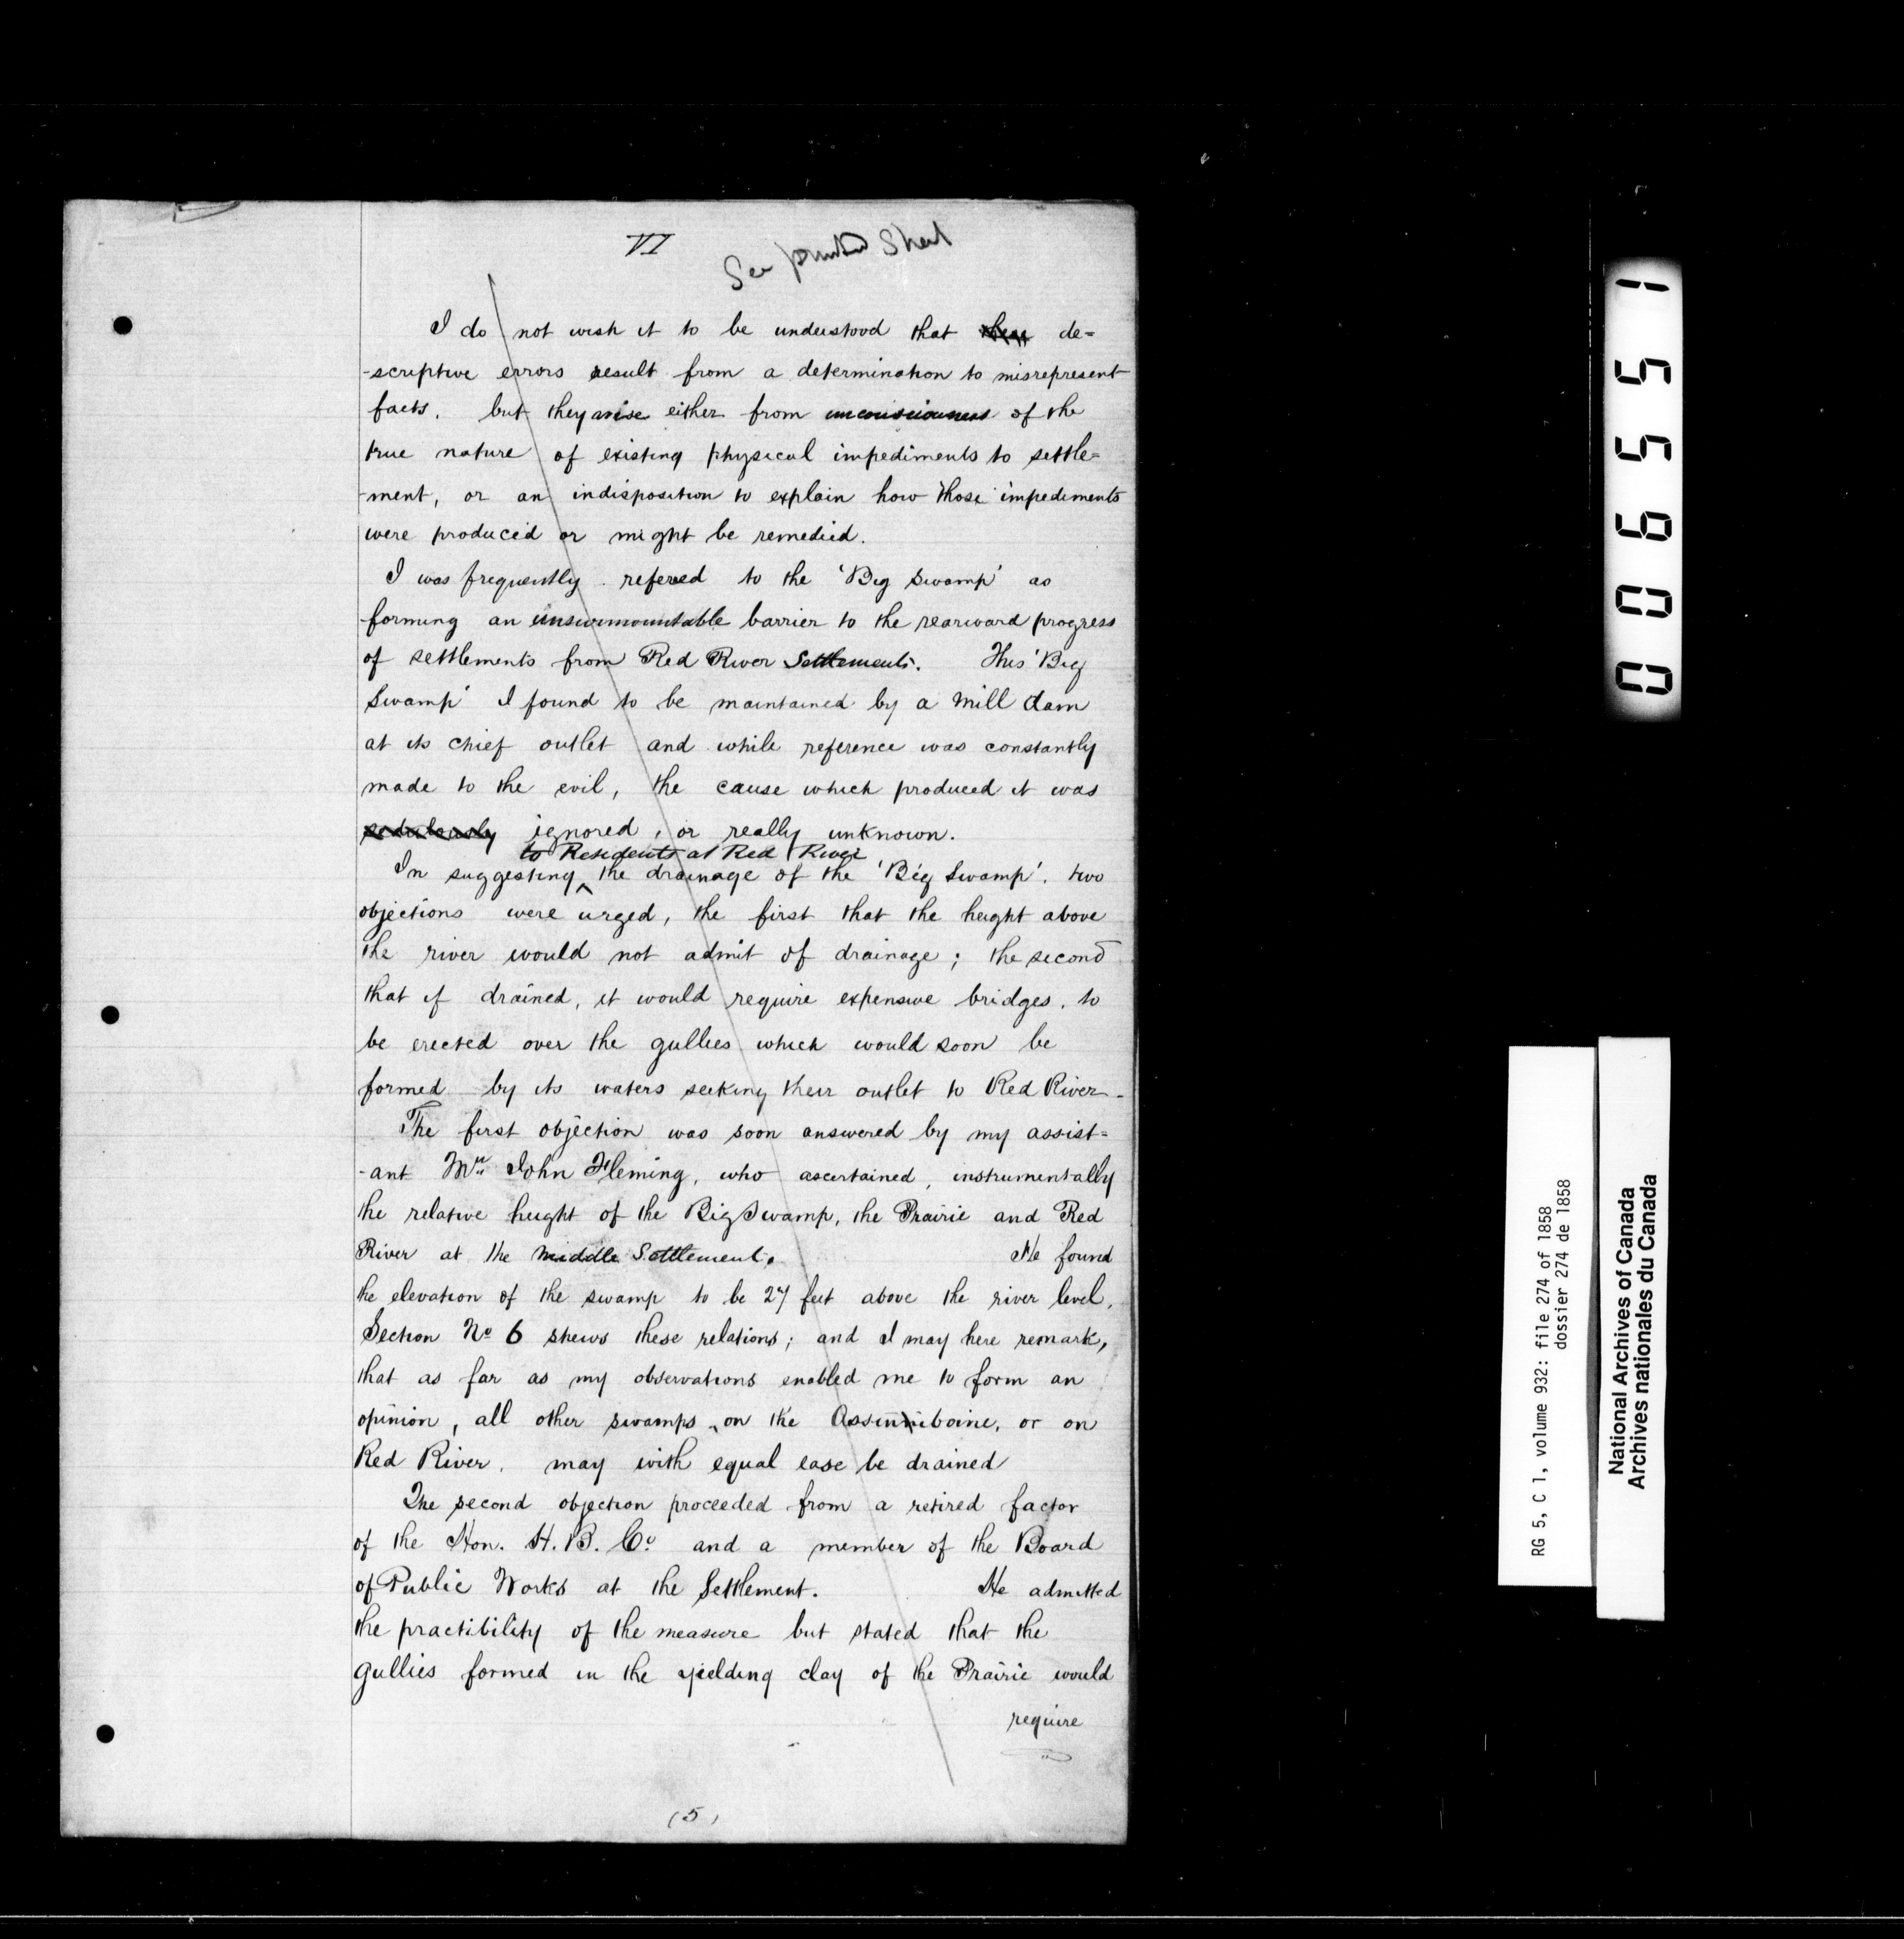 VI
See printed Sheet
I do not wish it to be understood that these de=
-scriptive errors result from a determination to misrepresent
facts. but they arise either from unconsciousness of the
true nature of existing physical impediments to settle=
-ment, or an indisposition to explain how those impediments
were produced or might be remedied.
I was frequently refered to the 'Big Swamp' as
forming an unsurmountable barrier to the rearward progress
of settlements from Red River Settlements. This 'Big
Swamp' I found to be maintained by a mill dam
at its chief outlet and while reference was constantly
made to the evil, the cause which produced it was
sedulously ignored, or really unknown.
to Residents at Red River
In suggesting ^ the drainage of the 'Big Swamp'. two
objections were urged, the first that the height above
the river would not admit of drainage; the second
that if drained, it would require expensive bridges. to
be erected over the gullies which would soon be
formed by its waters seeking their outlet to Red River-
The first objection was soon answered by my assist=
-ant Mr. John Fleming, who ascertained, instrumentally
the relative height of the Big Swamp, the Prairie and Red
River at the middle Settlement. He found
the elevation of the swamp to be 27 feet above the river level.
Section No 6 shews these relations; and I may here remark,
that as far as my observations enabled me to form an
opinion, all other swamps, on the Assinniboine, or on
Red River. may with equal ease be drained
The second objection proceeded from a retired factor
of the Hon. H. B. Co. and a member of the Board
of Public Works at the Settlement. He admitted
the practibility of the measure but stated that the
gullies formed in the yielding clay of the Prairie would
require
(5)
006551
RG 5, C 1, volume 932: file 274 of 1858
dossier 274 de 1858
National Archives of Canada
Archives nationales du Canada